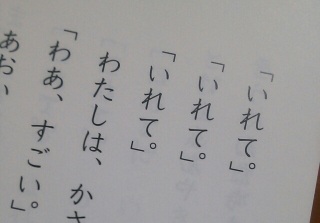 「いれて。」
「いれて。」
「いれて。」
わたしは、かさ
「わあ、すごい。」
あお、